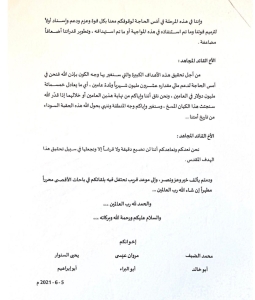 وإننا في هذه المرحلة في أمس الحاجة لوقوفكم معنا بكل قوة وعزم ودعم وإسناد أولاً
لترميم قوتنا وما تم استنفاده في هذه المواجهة أو ما تم استهدافه، وتطوير قدراتنا أضعافاً
مضاعفة.
الأخ القائد المجاهد:
من أجل تحقيق هذه الأهداف الكبيرة والتي ستغير بها وجه الكون بإذن الله فنحن في
أمس الحاجة لدعم مالي مقداره عشرون مليون شهرياً ولمدة عامين، أي ما يعادل خمسمائة
مليون دولار في العامين، ونحن نثق أننا وإياكم مع نهاية هذين العامين أو خلالهما إذا قدّر الله
سنجتث هذا الكيان المسخ، وسنغير وإياكم وجه المنطقة وننهي بحول الله هذه الحقبة السوداء
من تاريخ أمتنا.
الأخ القائد المجاهد:
نحن نعدكم ونعاهدكم أننا لن نضيع دقيقة ولا قرشاً إلا ونجعلها في سبيل تحقيق هذا
الهدف المقدس.
ودمتم بألف خير وعز ونصر، وإلى موعد قريب نحتفل فيه بلقائكم في باحات الأقصى محرراً
مطهراً إن شاء الله رب العالمين.
والحمد لله رب العالمين
والسلام عليكم ورحمة الله وبركاته
إخوانكم
محمد الضيف مروان عيسى يحيى السنوار
أبو خالد أبو البراء أبو إبراهيم
5 - 6 - 2021 م